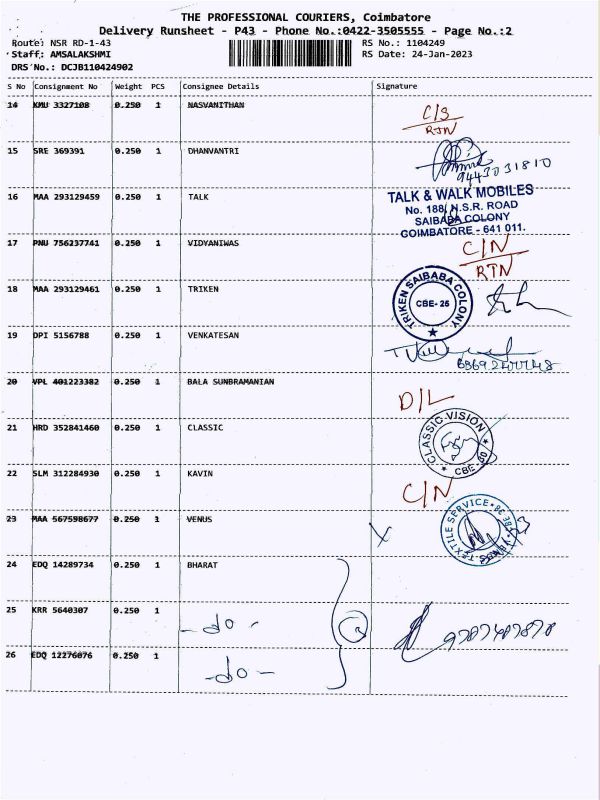 THE PROFESSIONAL COURIERS, Coimbatore
Delivery Runsheet - P43 - Phone No.:0422-3505555 - Page No.:2
Route: NSR RD-1-43 RS No.: 1104249
Staff: AMSALAKSHMI RS Date: 24-Jan-2023
DRS No.: DCJB110424902
S No Consignment No Weight PCS Consignee Details Signature
14 KMU 3327108 0.250 1 NASVANITHAN
C/S
RTN
15 SRE 369391 0.250 1 DHANVANTRI
9443031810
16 MAA 293129459 0.250 1 TALK
TALK & WALK MOBILES
No. 188, N.S.R. ROAD
SAIBABA COLONY
COIMBATORE - 641 011.
17 PNU 756237741 0.250 1 VIDYANIWAS C/N
RTN
18 MAA 293129461 0.250 1 TRIKEN
TRIKEN SAIBABA COLONY
CBE-25
19 DPI 5156788 0.250 1 VENKATESAN
20 VPL 401223382 0.250 1 BALA SUNBRAMANIAN
D/L
21 HRD 352841460 0.250 1 CLASSIC
CLASSIC VISION
22 SLM 312284930 0.250 1 KAVIN
C/N
23 MAA 567598677 0.250 1 VENUS
X
TEXTILE SERVICE
24 EDQ 14289734 0.250 1 BHARAT
25 KRR 5640307 0.250 1
- do -
26 EDQ 12276076 0.250 1
- do -